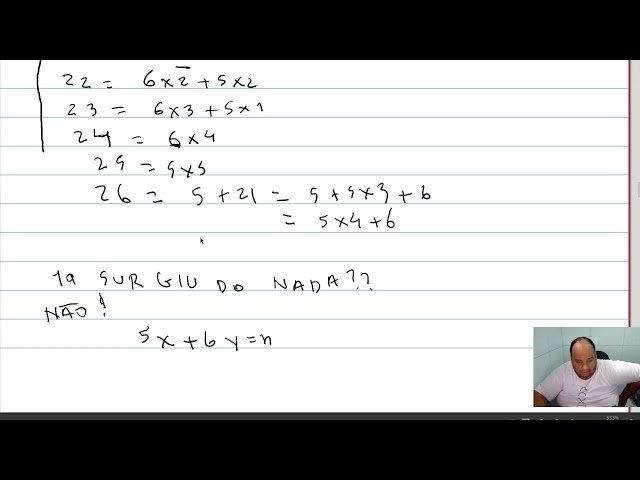 22 = 6x2 + 5x2
23 = 6x3 + 5x1
24 = 6x4
25 = 5x5
26 = 5 + 21 = 5 + 5x3 + 6
= 5x4 + 6
19 SURGIU DO NADA??
NÃO!
5x + 6y = n